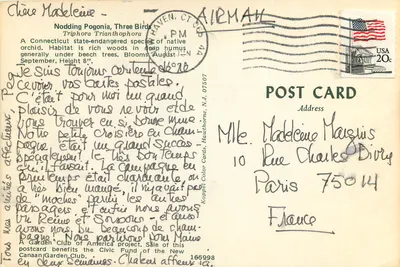 Chère Madeleine -
AIRMAIL
Nodding Pogonia, Three Birds
Triphora Trianthophora
A Connecticut state-endangered species
native orchid. Habitat is rich woods in deep humus
generally under beech trees. Blooms August
September, Height 8".
HAVEN, CT
PM
USA
20c
Je suis toujours contente de
recevoir vos cartes postales.
C'était pour moi un grand
plaisir de vous revoir et de
vous trouver en si bonne mine
Notre petite croisière en Cham-
pagne était un grand succès
malgré le très bon temps
qu'il faisait. La campagne en
printemps était charmante, on
a très bien mangé, il n'y avait pas
de "moches" parmi les autres
voyagers - et nous avons
vu Reims et Soissons - et aussi
avons bu beaucoup de cham-
pagne! Nous partirons au Maine
en deux semaines. Chaleur affreuse ici.
Tous mes amitiés affectueuses, Peg
A Garden Club of America project. Sale of this
postcard benefits the Civic Fund of the New
Canaan Garden Club.
166998
Koppel Color Cards, Hawthorne, N.J. 07507
POST CARD
Address
Mlle. Madeleine Marquis
10 Rue Charles Divry
Paris 75014
France